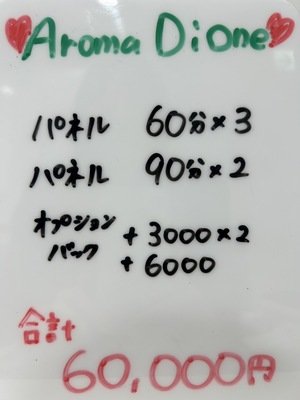 Aroma Dione
パネル 60分×3
パネル 90分×2
オプション
バック +3000×2
+6000
合計
60,000円